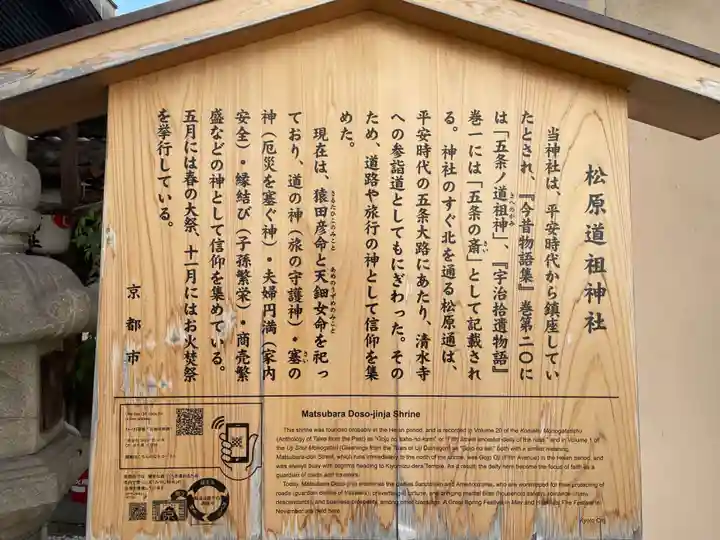 松原道祖神社
当神社は、平安時代から鎮座してい
たとされ、『今昔物語集』巻第二〇に
は「五条ノ道祖神」、『宇治拾遺物語』
巻一には「五条の斎」として記載され
る。神社のすぐ北を通る松原通は、
平安時代の五条大路にあたり、清水寺
への参詣道としてもにぎわった。その
ため、道路や旅行の神として信仰を集
めた。
現在は、猿田彦命と天鈿女命を祀っ
ており、道の神（旅の守護神）・塞の
神（厄災を塞ぐ神）・夫婦円満（家内
安全）・縁結び（子孫繁栄）・商売繁
盛などの神として信仰を集めている。
五月には春の大祭、十一月にはお火焚祭
を挙行している。
京都市
Matsubara Doso-jinja Shrine
This shrine was founded probably in the Heian period, and is recorded in Volume 20 of the Konjaku Monogatarishu
(Anthology of Tales from the Past) as "Gojo no
and in Volume 1 of
the Uji Shui Monogatari (Gleanings from the
both with a similar meaning.
Matsubara-dori Street, which runs immediately to the north of the shrine, was Gojo Oji (Fifth Avenue) in the Heian period, and
was always busy with pilgrims heading to Kiyomizu-dera Temple. As a result, the deity here became the focus of faith as a
guardian of roads and travelers.
Today, Matsubara Doso-jinja enshrines the deities Sarutahiko and Amenouzume, who are worshipped for their protecting of
roads (guardian deities of travelers), preventing
and business prosperity, among other blessings. A Great Spring Festival in May and
Fire Festival in
November are held here.
Kyoto City